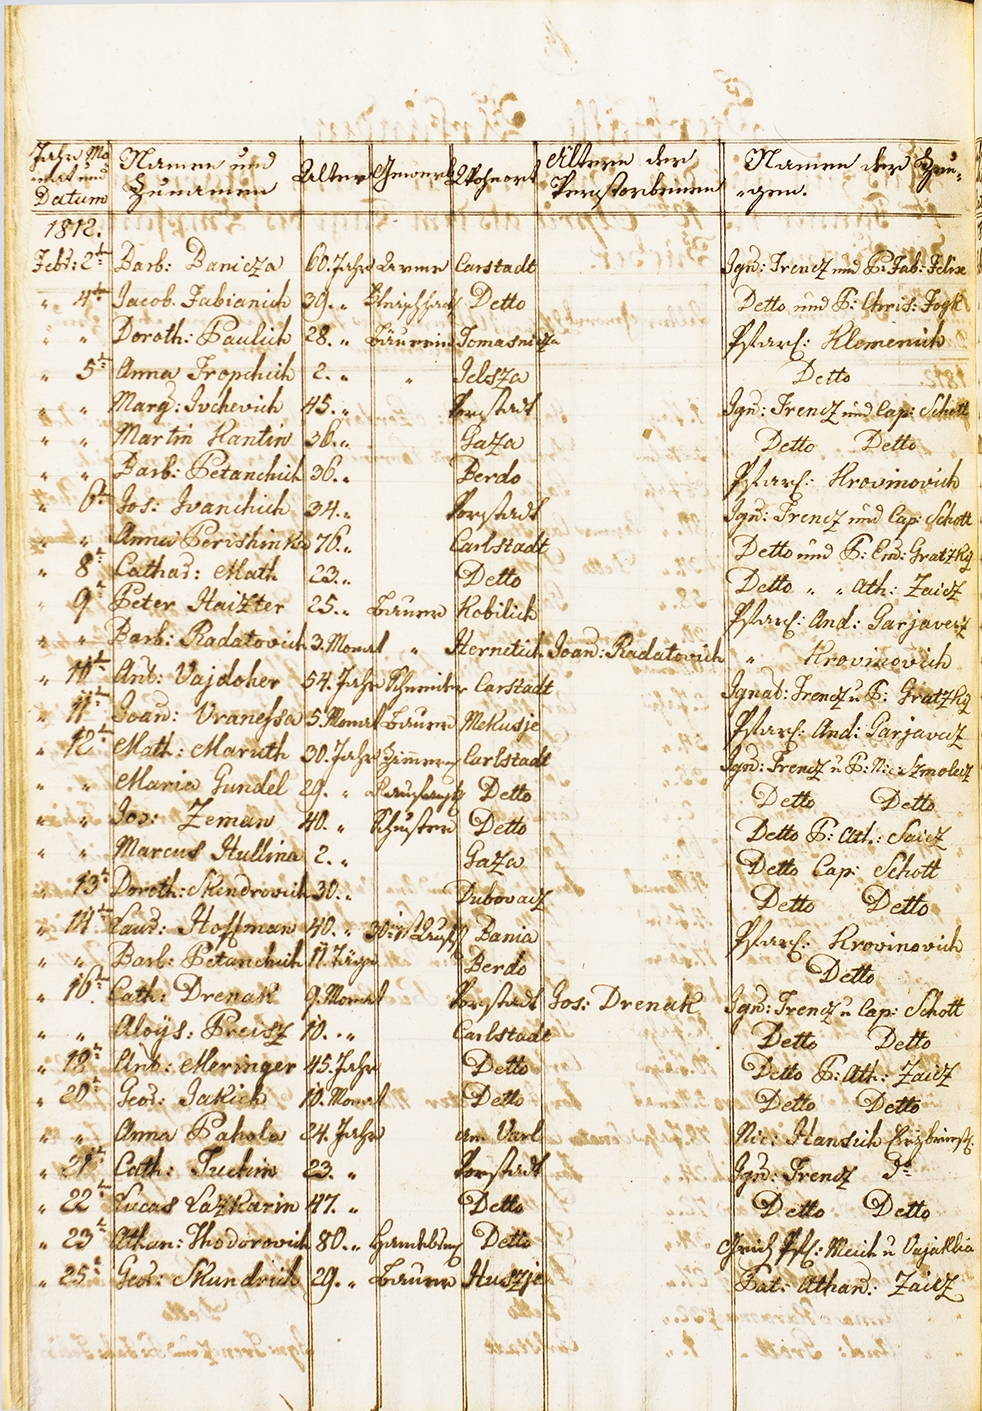 Jahr Mo Namen und Alter Gewerb Wohnort Ältern der Namen der Zeu-
nat und Zunamen Verstorbenen gen.
Datum
1812.
Febr: 2t Barb: Danicza 60. Jahr Arme Carstadt Ign: Trencz und P: Fab: Felix
" 4t Jacob Fabianich 39. " Detto Detto und P: Chris: Fogk
" " Doroth: Paulich 28. " Bäurin Tomasnicza Pfarf: Klemenich
" 5t Anna Tropchich 2. " " Jelsza Detto
" " Marg: Ivchevich 45. " Vorstadt Ign: Trencz und Cap: Schott
" " Martin Kantin 36. " Gaza Detto Detto
" " Barb: Petanchich 36. " Berdo Pfarf: Krovinovich
" 6t Jos: Ivanchich 34. " Vorstadt Ign: Trencz und Cap: Schott
" " Anna Perishinka 76. " Carlstadt Detto und P: End: Gratzky
" 8t Cathar: Math 23. " Detto Detto " " Ath: Zaicz
" 9t Peter Haizter 25. " Bauer Kobilich Pfarf: And: Garjavecz
" " Barb: Radatovich 3. Monat " Hernetich Joan: Radatovich " Krovinovich
" 10t Ant: Vajdoher 54. Jahr Schneider Carstadt Ignat: Trencz u P: Gratzky
" 11t Joan: Vranessa 5. Monat Bauer Mekusje Pfarf: And: Garjavecz
" 12t Math: Maruth 30. Jahr Carlstadt Ign: Trencz u P: Nic: Szmolecz
" " Maria Gundel 29. " Detto Detto Detto
" " Jos: Zeman 40. " Schuster Detto Detto P: Ath: Saicz
" " Marcus Hullina 2. " Gaza Detto Cap: Schott
" 13t Doroth: Skendrovich 30. " Dubovacz Detto Detto
" 14t Laur: Hoffman 40. " Bania Pfarf: Krovinovich
" " Barb: Petanchich 11 Täge Berdo Detto
" 16t Cath: Drenak 9. Monat Vorstadt Jos: Drenak Ign: Trencz u Cap: Schott
" " Aloÿs: Preisz 10. " Carlstadt Detto Detto
" 18t Ant: Meringer 45. Jahr Detto Detto P: Ath: Zaicz
" 20t Geor: Jakich 10. Monat Detto Detto Detto
" " Anna Pahola 24. Jahr am Varl Nic: Hansich
" 21t Cath: Tuchin 23. " Vorstadt Ign: Trencz dt
" 22t Lucas Lazkarin 47. " Detto Detto Detto
" 23t Athan: Thodorovich 80. " Detto Meich u Vujaklia
" 25t Geor: Skundrich 29. " Bauer Huszje Pat: Athan: Zaicz